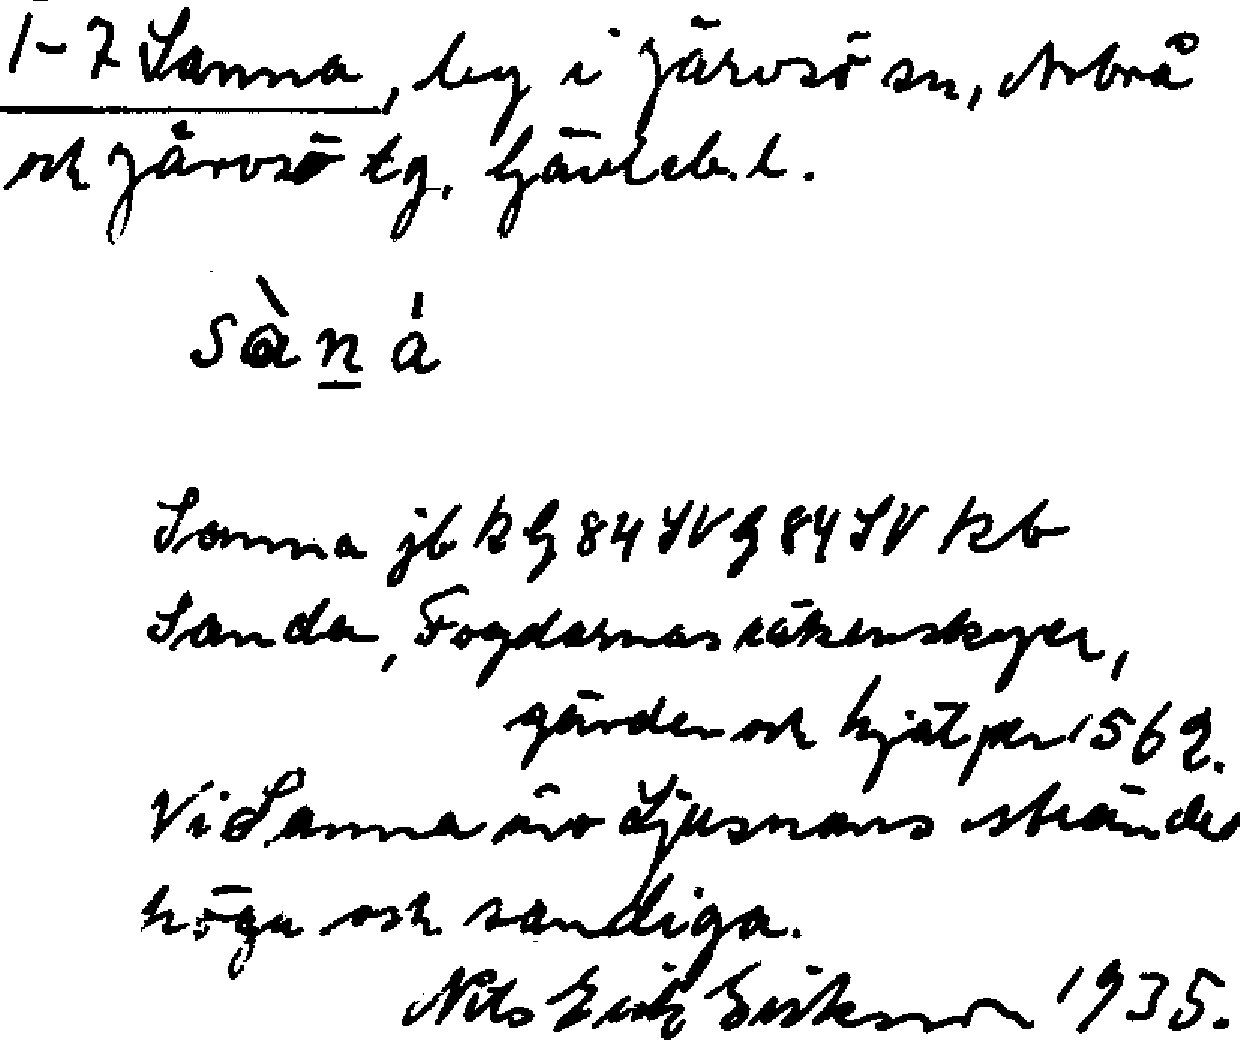 1-7 Sanna, by i Järvsö sn, Arbrå
och Järvsö tg. Gävleb. l.
sàná
Sanna jb k G 84 SV G 84 SV kb
Sanda, Fogdarnas räkenskaper,
gärder och hjälper 1562.
Vid Sanna äro Ljusnans stränder
höga och sandiga.
Nils Erik Eriksson 1935.